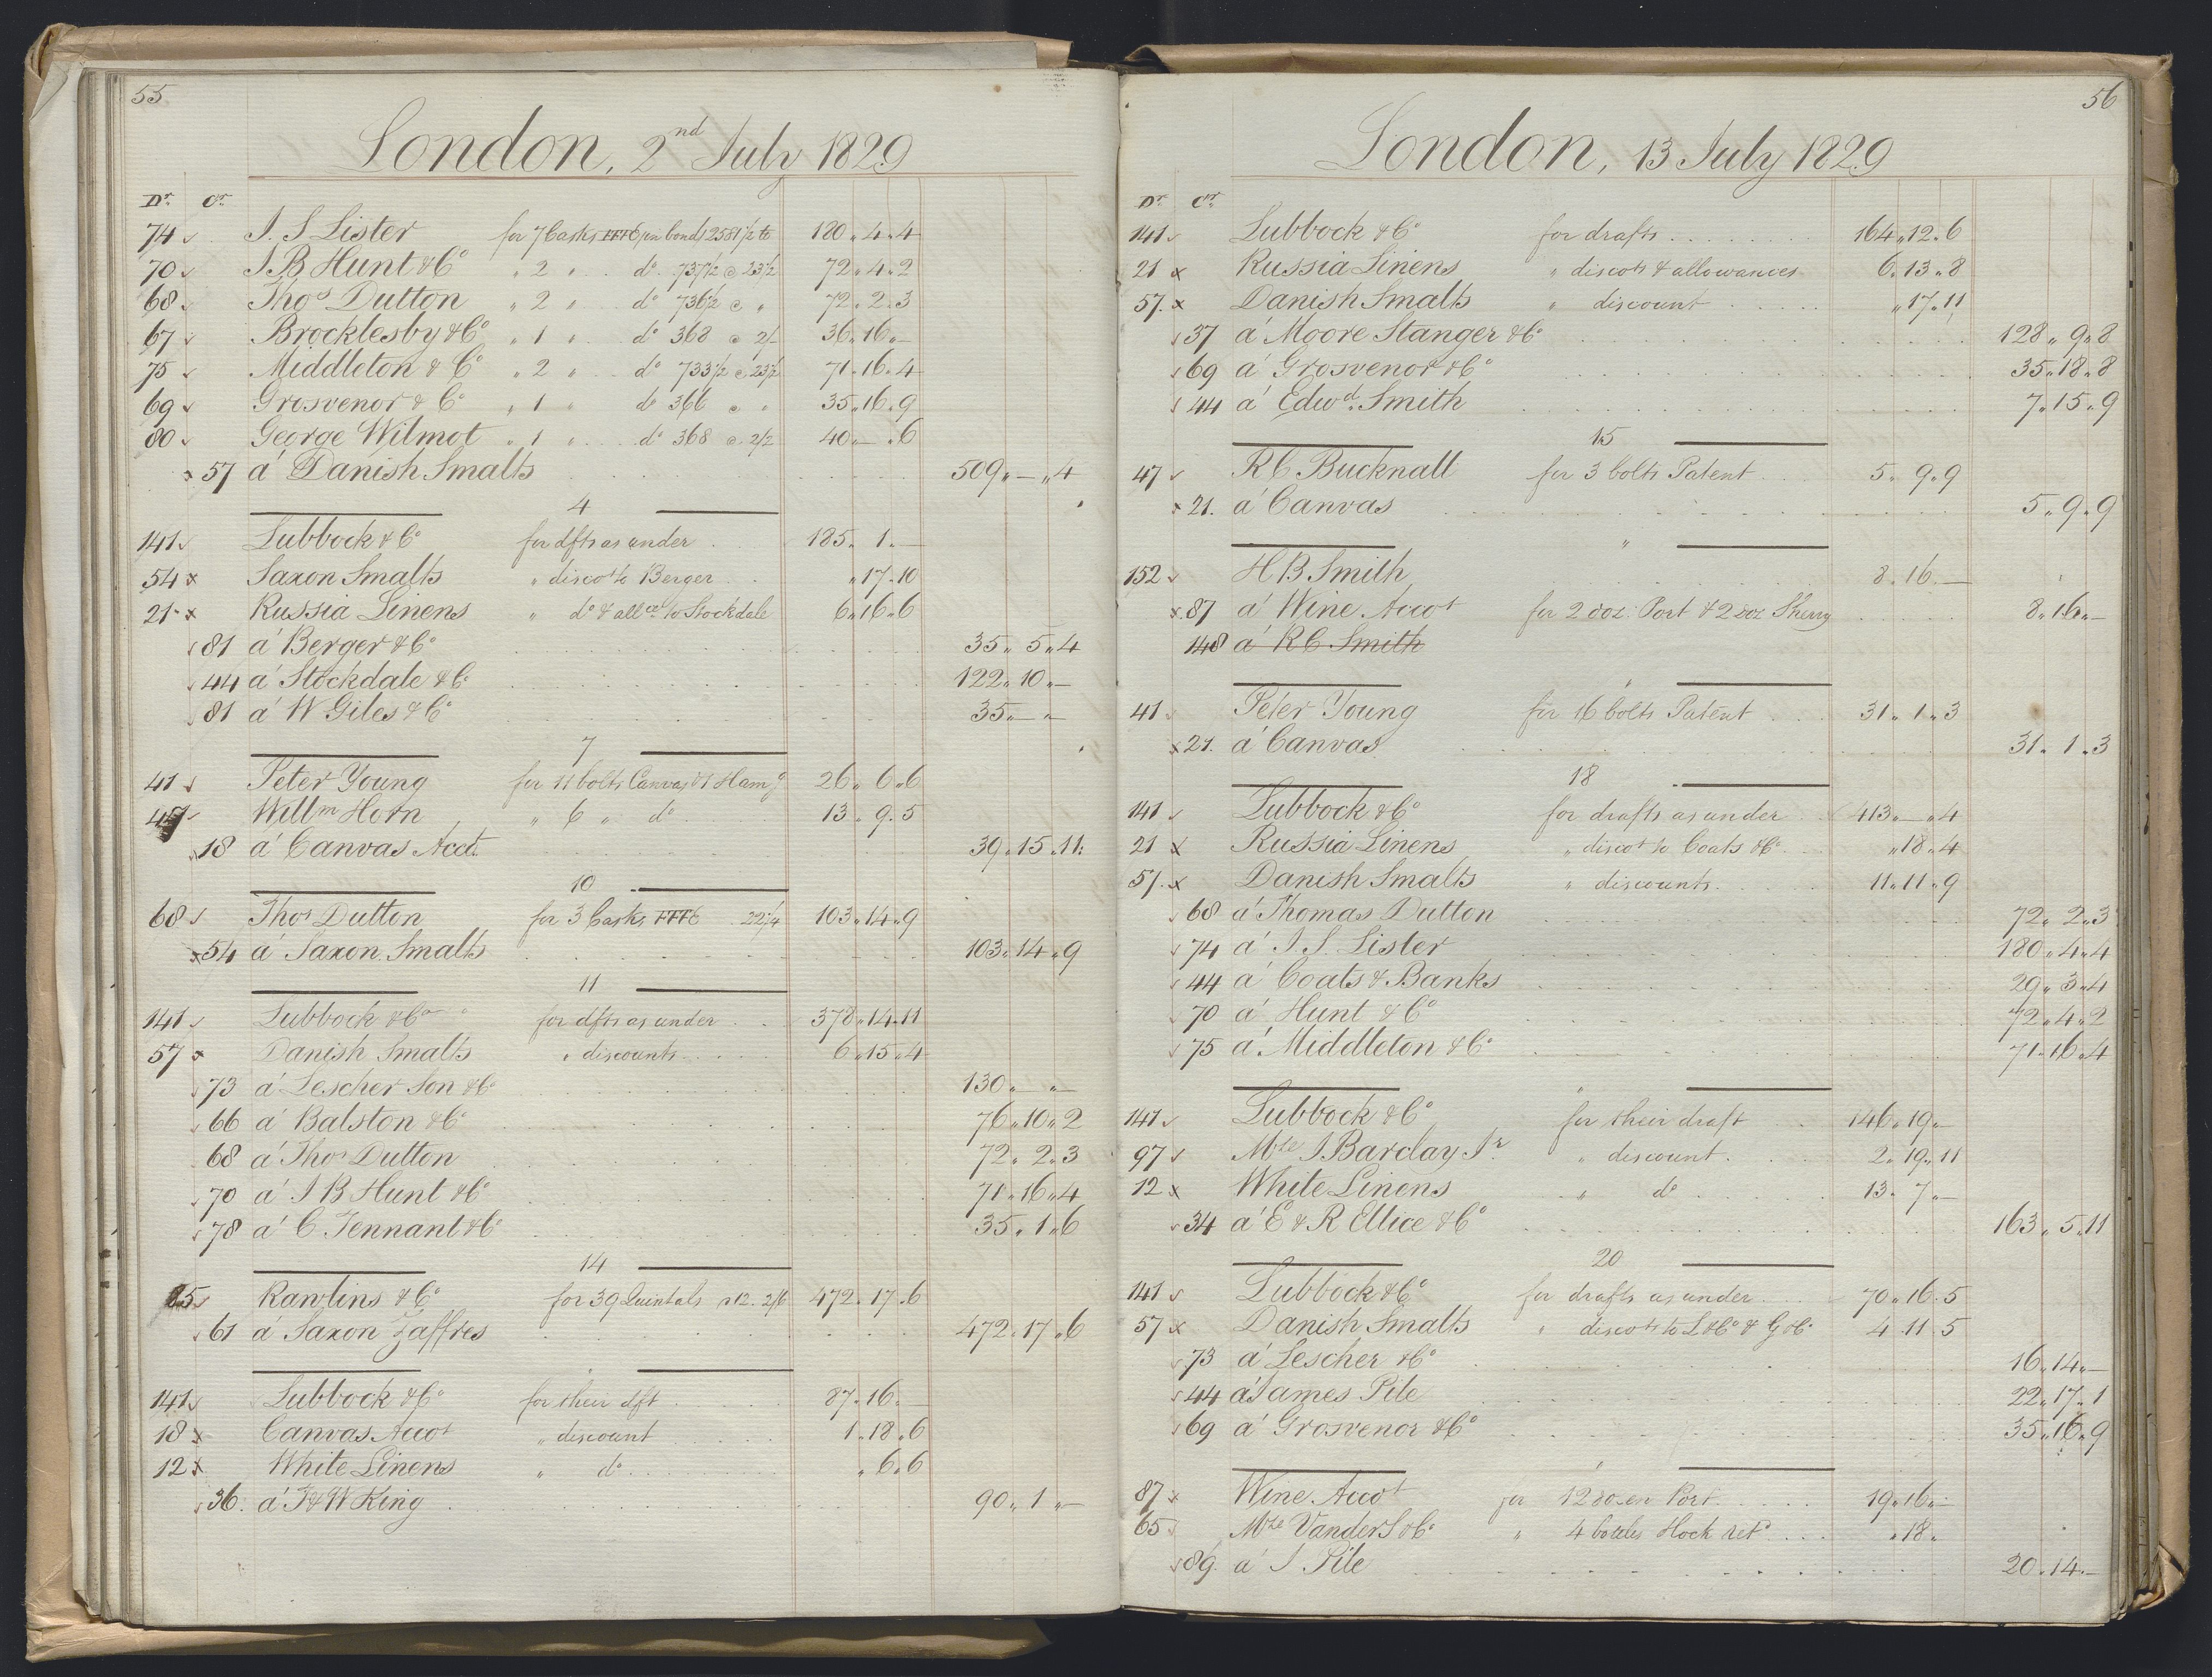 55
London, 2nd July 1829
Dr. Cr.
74 I. S Lister for 7 Casks FFFC in bond 2581 1/2 lb 180 " 4 " 4
70 I. B Hunt & Co " 2 " do 737 1/2 @ 23 1/2 72 " 4 " 2
68 Thos Dutton " 2 " do 736 1/2 @ " 72 " 2 " 3
67 Brocklesby & Co " 1 " do 368 @ 2/- 36 " 16 " —
75 Middleton & Co " 2 " do 733 1/2 @ 23 1/2 71 " 16 " 4
69 Grosvenor & Co " 1 " do 366 @ " 35 " 16 " 9
80 George Wilmot " 1 " do 368 @ 2/2 40 " — " 6
57 a' Danish Smalts 509 " — " 4
4
141 Lubbock & Co for dfts as under 185 " 1 " —
54 Saxon Smalts " discot to Berger " 17 " 10
21 Russia Linens " do & allce to Stockdale 6 " 16 " 6
81 a' Berger & Co 35 " 5 " 4
44 a' Stockdale & Co 122 " 10 " —
81 a' W Giles & Co 35 " — " —
7
41 Peter Young for 11 bolts Canvas & 1 Hamg 26 " 6 " 6
Willm Horn " 6 " do 13 " 9 " 5
18 a' Canvas Acct. 39 " 15 " 11
10
68 Thos Dutton for 3 Casks FFFC 22 1/4 103 " 14 " 9
54 a' Saxon Smalts 103 " 14 " 9
11
141 Lubbock & Co for dfts as under 378 " 14 " 11
57 Danish Smalts " discounts 6 " 15 " 4
73 a' Lescher Son & Co 130 " — " —
66 a' Balston & Co 76 " 10 " 2
68 a' Thos Dutton 72 " 2 " 3
70 a' I B Hunt & Co 71 " 16 " 4
78 a' C. Tennant & Co 35 " 1 " 6
14
85 Rawlins & Co for 39 Quintals @ 12. 2/6 472 " 17 " 6
61 a' Saxon Zaffres 472 " 17 " 6
"
141 Lubbock & Co for their dft 87 " 16 " —
18 Canvas Accot " discount 1 " 18 " 6
12 White Linens " do " 6 " 6
36 a' J & W King 90 " 1 " —
56
London, 13 July 1829
Dr. Cr.
141 Lubbock & Co for drafts 164 " 12 " 6
21 Russia Linens " discots & allowances 6 " 13 " 8
57 Danish Smalts " discount " 17 " 11
37 a' Moore Stanger & Co 128 " 9 " 8
69 a' Grosvenor & Co 35 " 18 " 8
44 a' Edwd. Smith 7 " 15 " 9
15
47 R C Bucknall for 3 bolts Patent 5 " 9 " 9
21. a' Canvas 5 " 9 " 9
"
152 H B Smith 8 " 16 " —
87 a' Wine Accot for 2 doz: Port & 2 doz Sherry 8 " 16 " —
148 a' R C Smith
"
41 Peter Young for 16 bolts Patent 31 " 1 " 3
21. a' Canvas 31 " 1 " 3
18
141 Lubbock & Co for drafts as under 413 " — " 4
21 Russia Linens " discot to Coats & Co " 18 " 4
57. Danish Smalts " discounts 11 " 11 " 9
68 a' Thomas Dutton 72 " 2 " 3
74 a' I. S. Lister 180 " 4 " 4
44 a' Coats & Banks 29 " 3 " 4
70 a' Hunt & Co 72 " 4 " 2
75 a' Middleton & Co 71 " 16 " 4
"
141 Lubbock & Co for their draft 146 " 19 " —
97 Mdze I. Barclay Jr " discount 2 " 19 " 11
12 White Linens " do 13 " 7 " —
34 a' E & R Ellice & Co 163 " 5 " 11
20
141 Lubbock & Co for drafts as under 70 " 16 " 5
57 Danish Smalts " discots to L & Co & G & Co 4 " 11 " 5
73 a' Lescher & Co 16 " 14 " —
44 a' James Pile 22 " 17 " 1
69 a' Grosvenor & Co 35 " 16 " 9
"
87 Wine Accot for 12 dozen Port 19 " 16 " —
65 Mdze Vander S & Co " 4 bottles Hock retd " 18 "
89 a' I Pile 20 " 14 " —